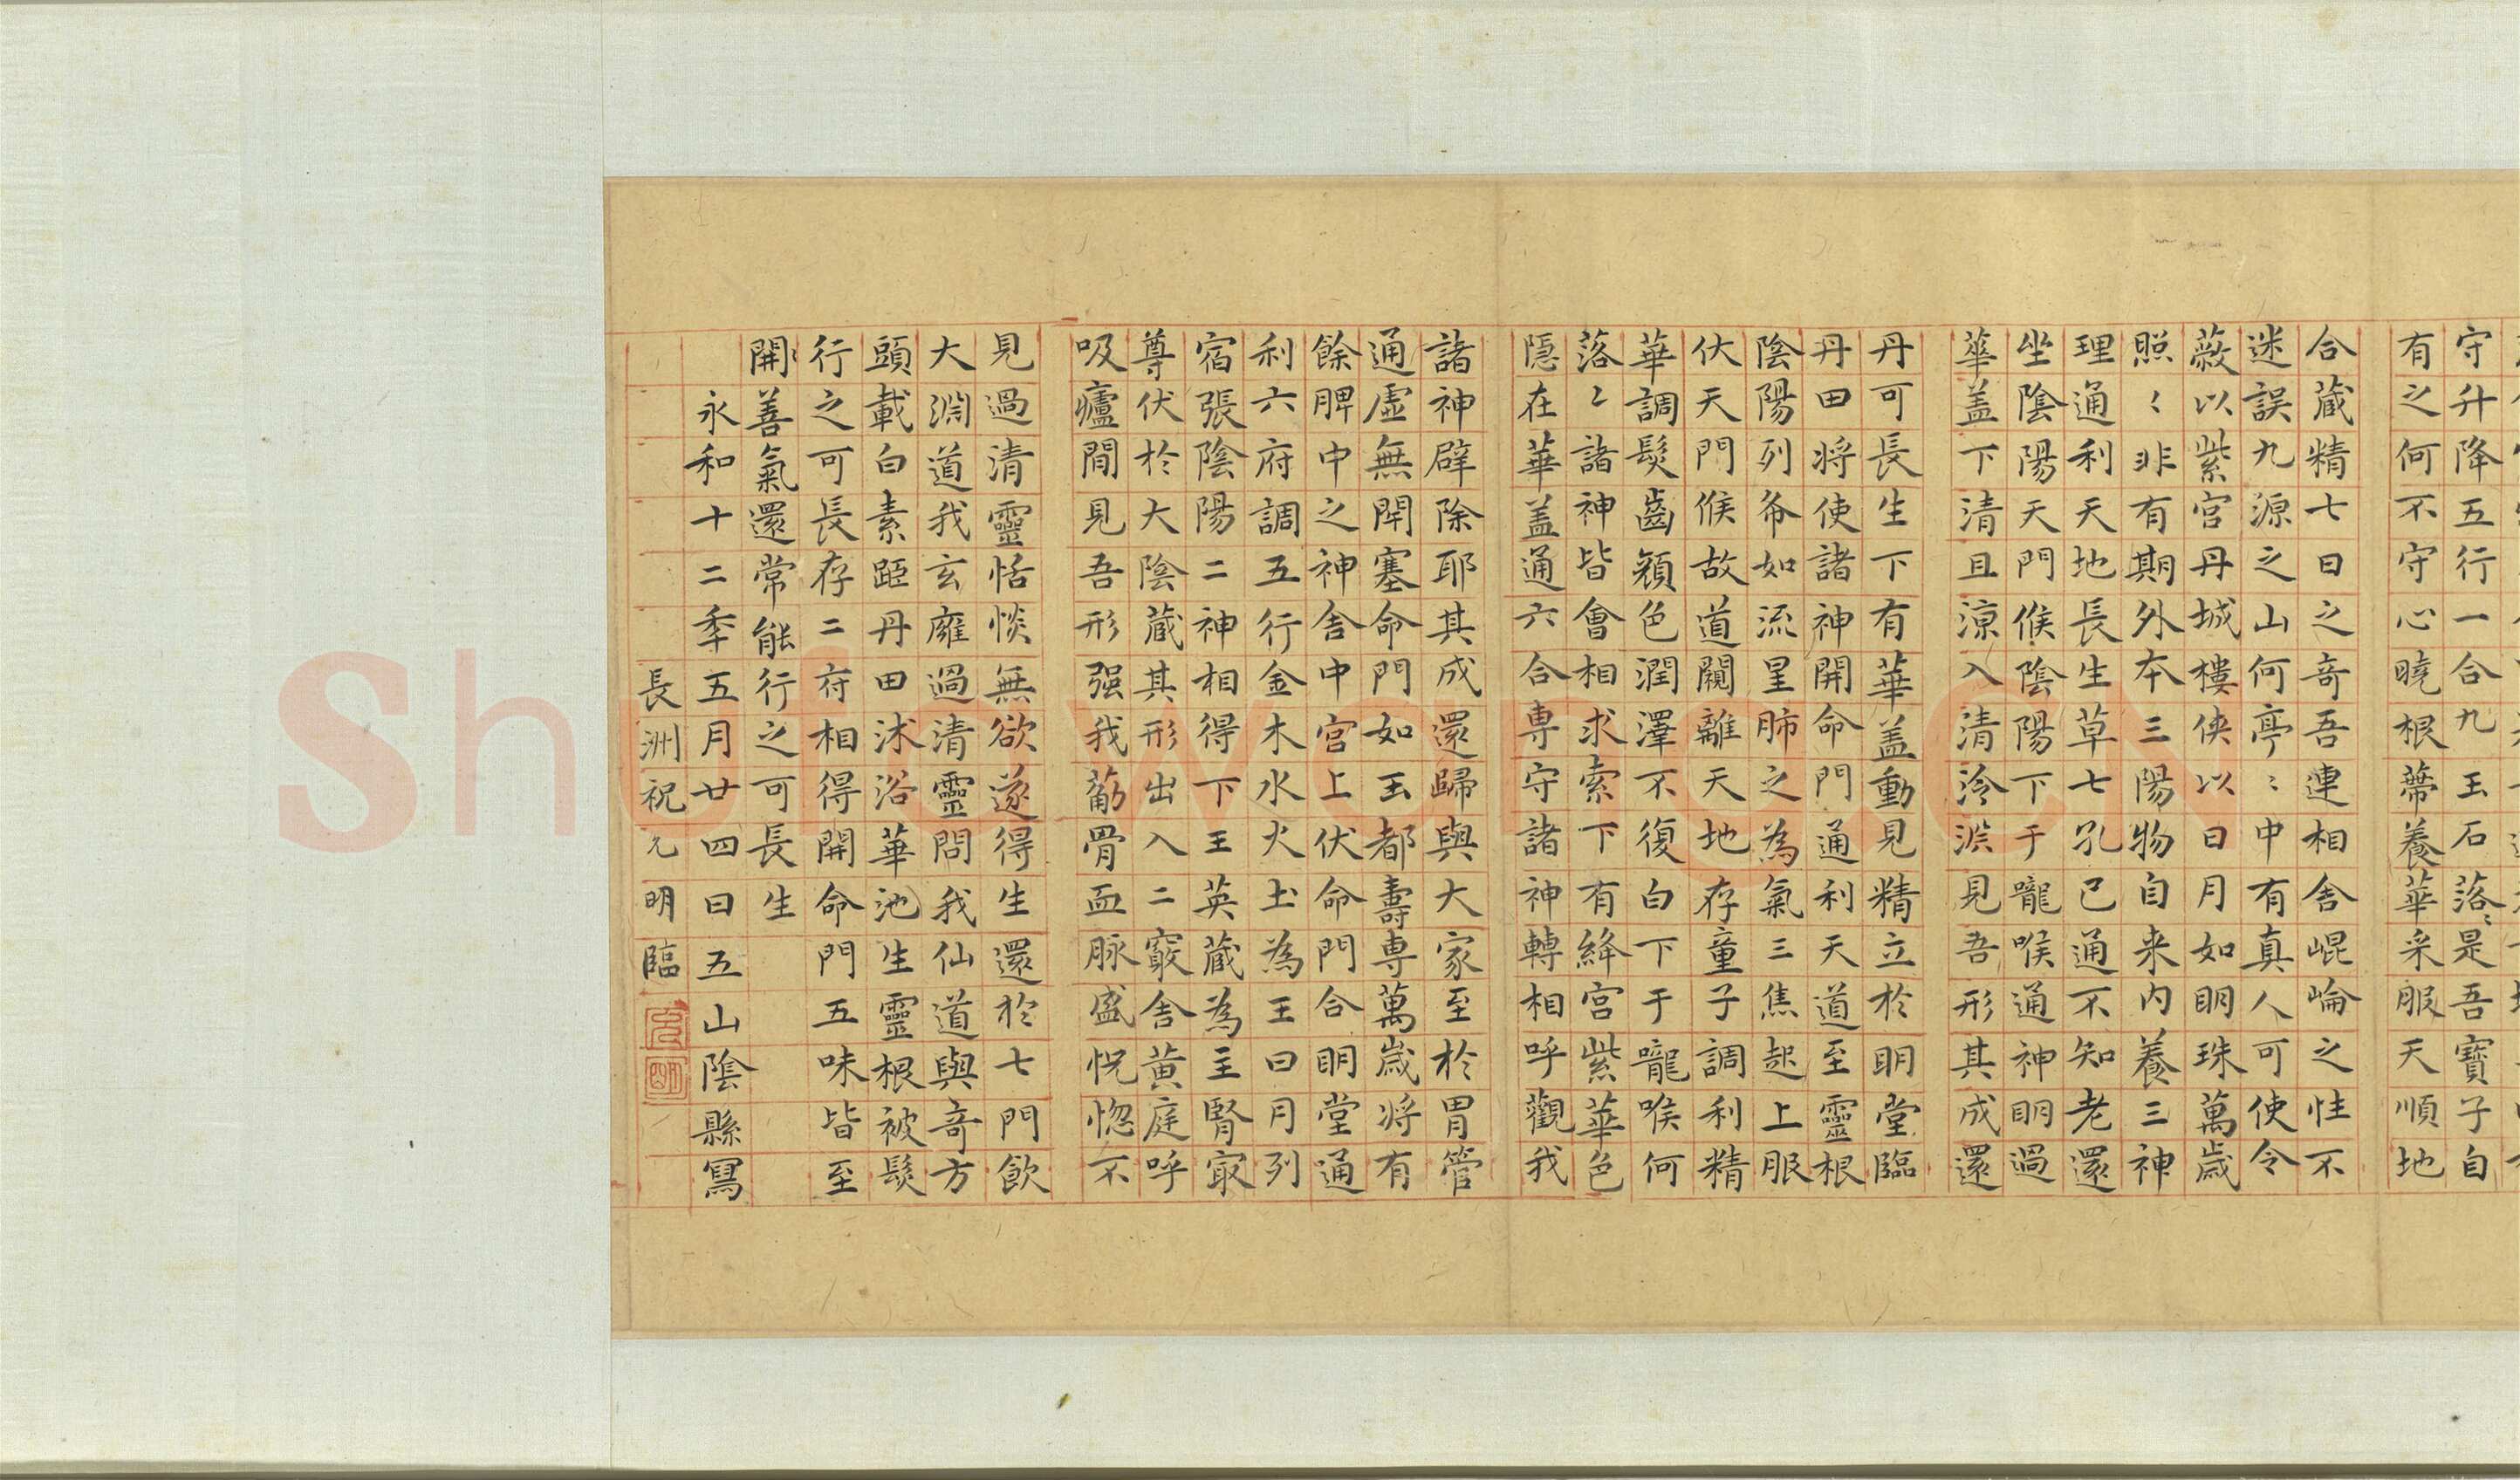 守升降五行一合九玉石落〻是吾寶子自
有之何不守心曉根蒂養華采服天順地
合藏精七日之奇吾連相舎崐崘之性不
迷誤九源之山何亭〻中有真人可使令
蔽以紫宮丹城樓俠以日月如明珠萬歳
照〻非有期外本三陽物自来内養三神
理通利天地長生草七孔已通不知老還
坐陰陽天門候陰陽下于嚨喉通神明過
華盖下清且涼入清泠淵見吾形其成還
丹可長生下有華盖動見精立於明堂臨
丹田将使諸神開命門通利天道至靈根
陰陽列布如流星肺之為氣三焦起上服
伏天門候故道闚離天地存童子調利精
華調髮齒顔色潤澤不復白下于嚨喉何
落〻諸神皆會相求索下有絳宮紫華色
隱在華盖通六合専守諸神轉相呼觀我
諸神辟除耶其成還歸與大家至於胃管
通虚無閉塞命門如玉都壽専萬歳将有
餘脾中之神舎中宮上伏命門合明堂通
利六府調五行金木水火土為王日月列
宿張陰陽二神相得下王英蔵為主腎㝡
尊伏於大陰蔵其形出入二竅舎黄庭呼
吸廬間見吾形强我筋骨血脉盛恍惚不
見過清靈恬惔無欲遂得生還於七門飲
大淵道我玄廱過清靈問我仙道與奇方
頭載白素距丹田沐浴華池生靈根被髮
行之可長存二府相得開命門五味皆至
開善氣還常能行之可長生
永和十二秊五月廿四日五山陰縣冩
長洲祝允明臨
允明
Shufawang.CN